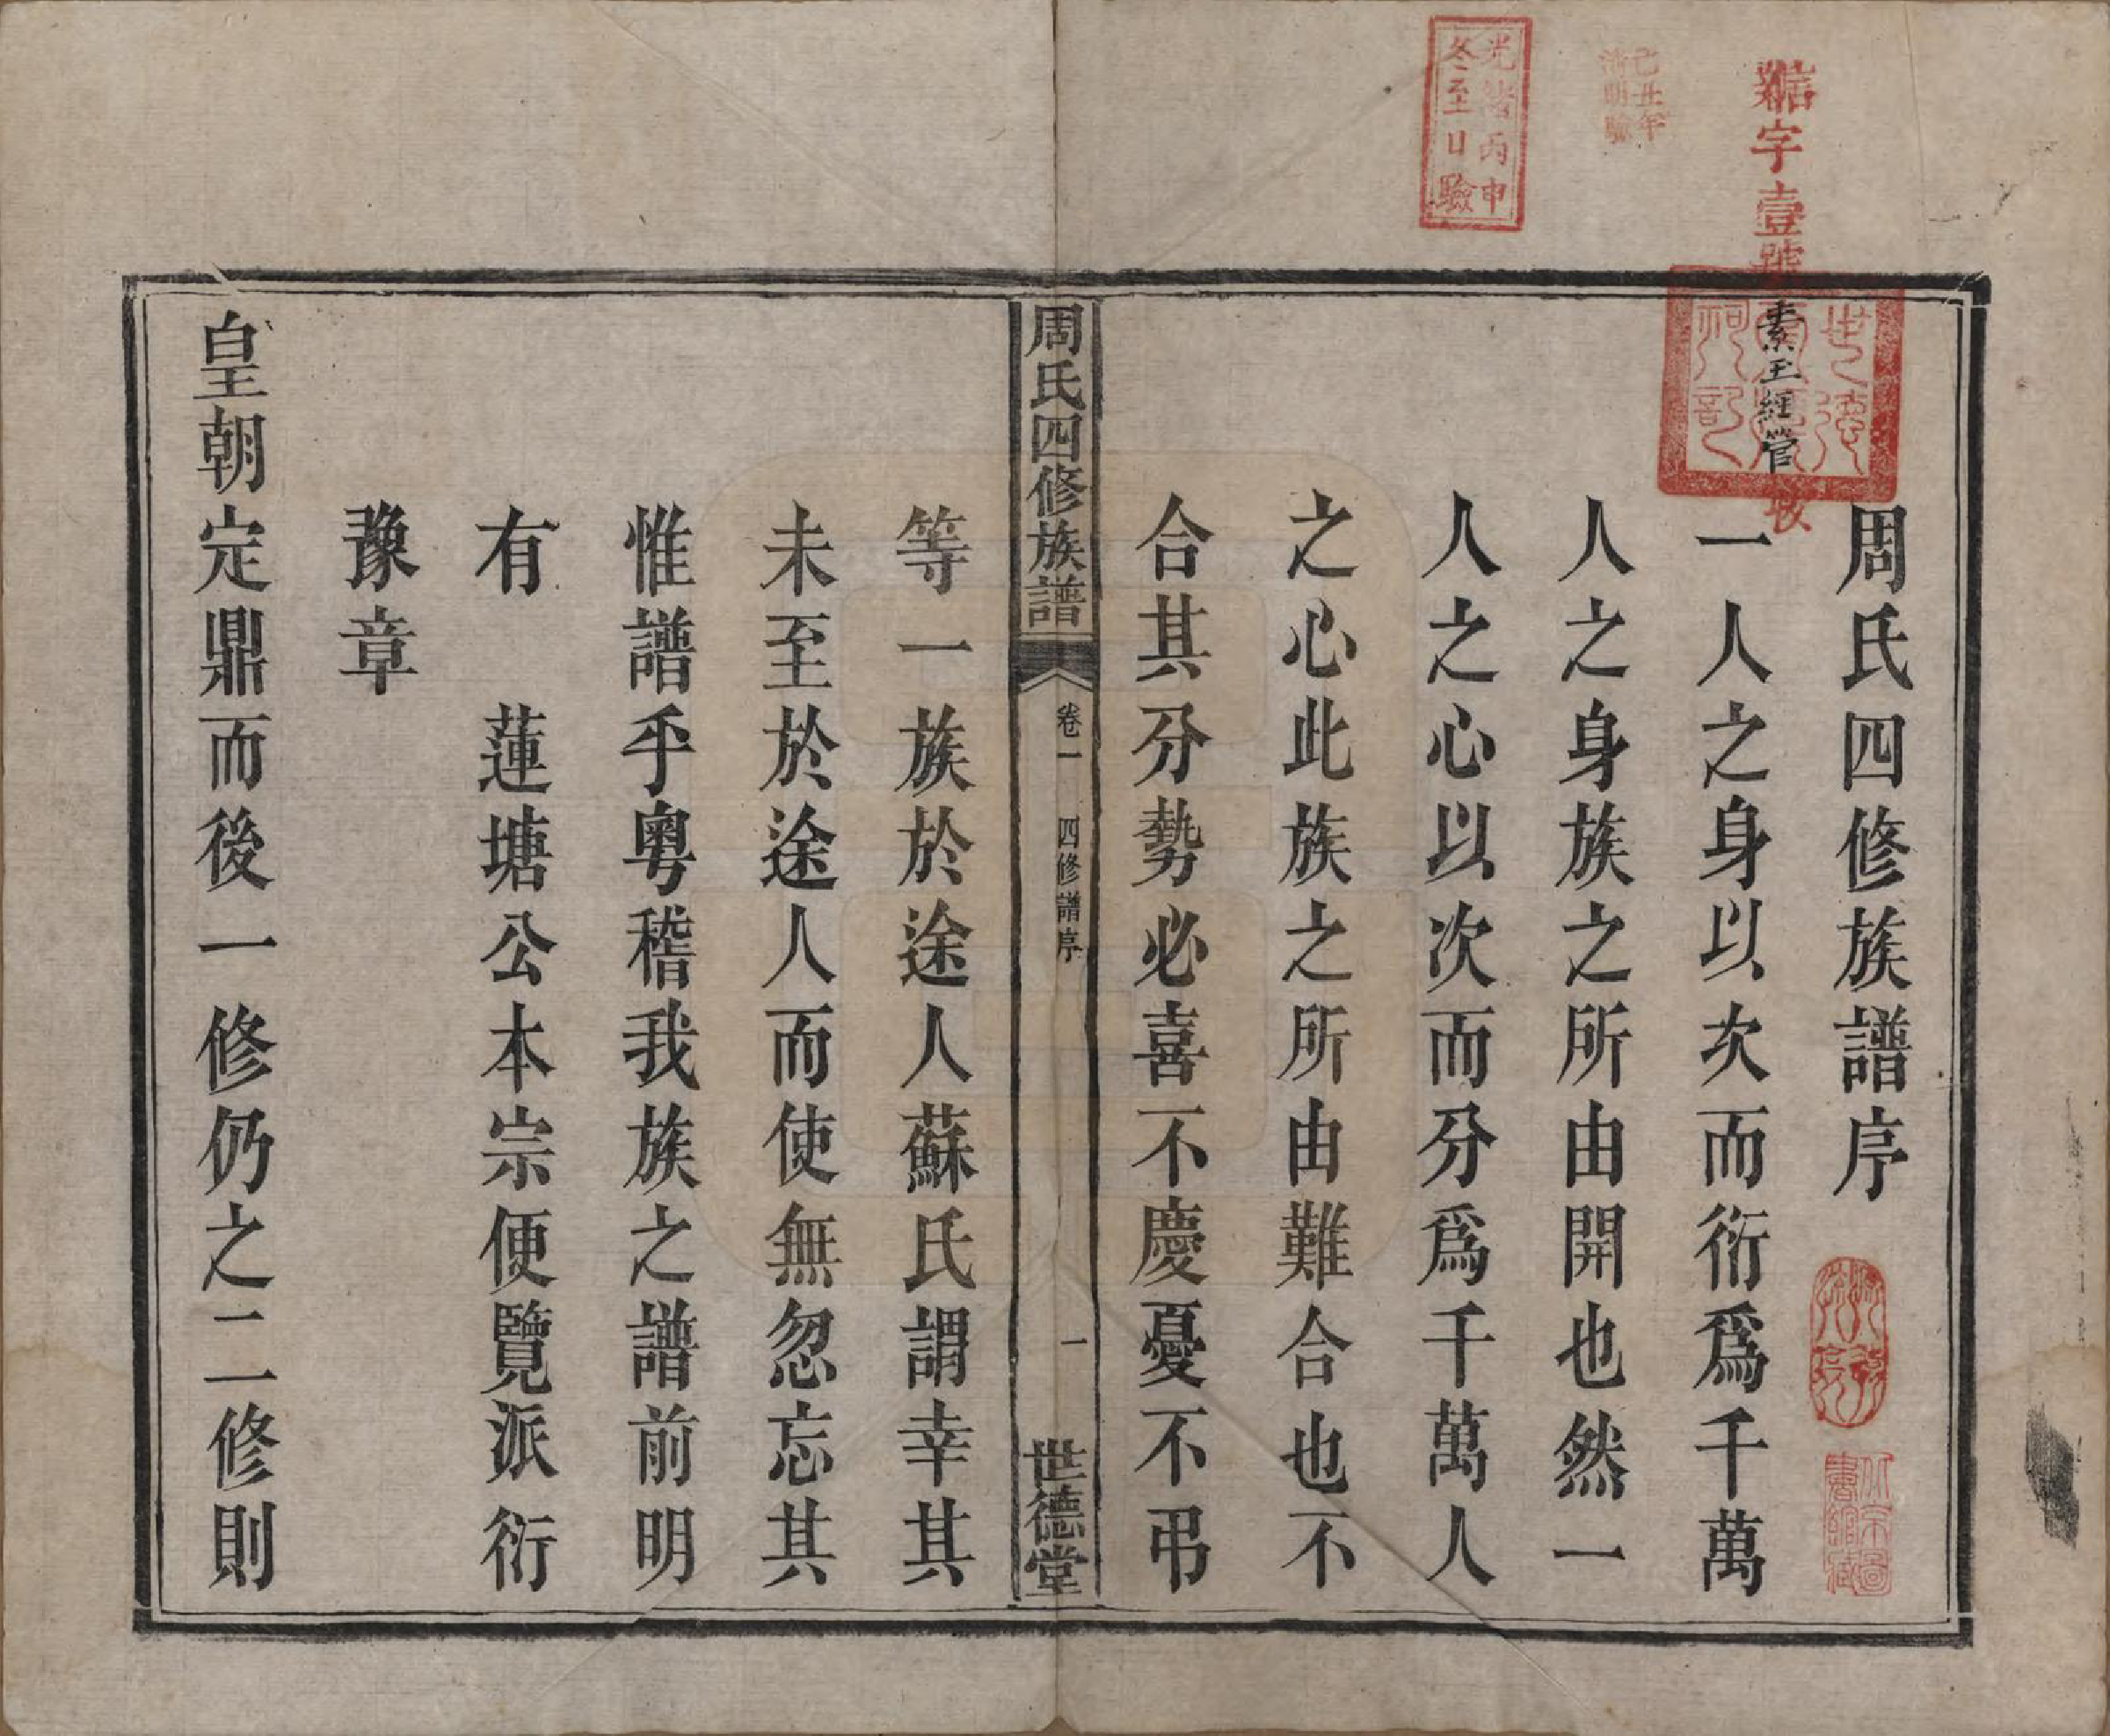 周氏四修族譜序
一人之身以次而衍爲千萬
人之身族之所由開也然一
人之心以次而分爲千萬人
之心此族之所由難合也不
合其分勢必喜不慶憂不弔
周氏四修族譜
卷一
四修譜序
一
世德堂
等一族於途人蘇氏謂幸其
未至於途人而使無忽忘其
惟譜乎粵稽我族之譜前明
有　蓮塘公本宗便覽派衍
豫章
皇朝定鼎而後一修仍之二修則
字壹號
素王經管
收
光緒丙申
冬至日驗
己丑年
清明驗